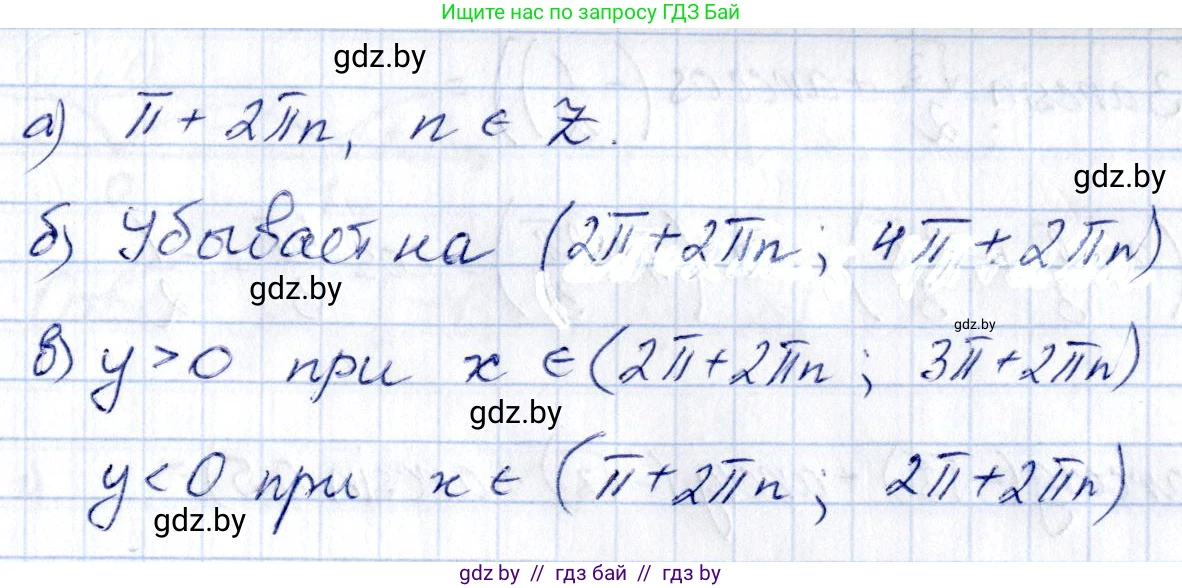 Ищите нас по запросу ГДЗ Бай
gdz.by
а) π + 2πn, n ∈ Z.
gdz.by
б) Убывает на (2π + 2πn; 4π + 2πn)
gdz.by
gdz.by
в) y > 0 при x ∈ (2π + 2πn; 3π + 2πn)
gdz.by
y < 0 при x ∈ (π + 2πn; 2π + 2πn)
gdz.by
gdz by // гдз бай // гдз by